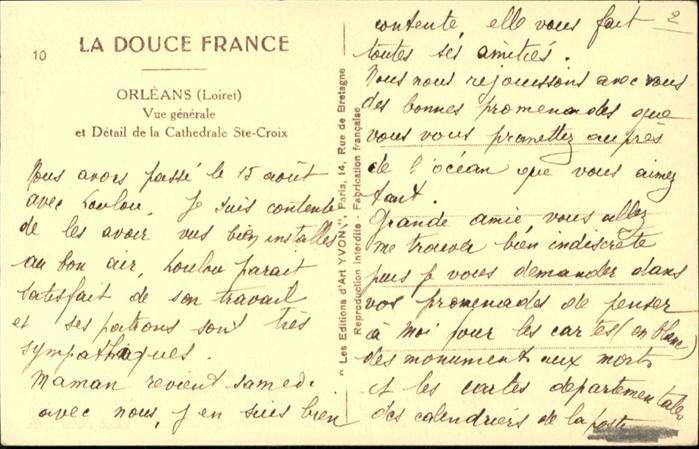 10
LA DOUCE FRANCE
ORLÉANS (Loiret)
Vue générale
et Détail de la Cathedrale Ste-Croix
Nous avons passé le 15 août
avec Loulou, Je suis contente
de les avoir vus bien installés
au bon air, Loulou parait
satisfait de son travail
et ses patrons sont très
sympathiques.
Maman revient samedi
avec nous, j'en suis bien
" Les Editions d'Art YVON", Paris, 14, Rue de Bretagne
Reproduction interdite - Fabrication française
2
contente, elle vous fait
toutes ses amitiés.
Nous nous rejouissons avec vous
des bonnes promenades que
vous vous promettez auprès
de l'océan que vous aimez
tant.
Grande amie, vous allez
me trouver bien indiscrète
puis je vous demander dans
vos promenades de penser
à moi pour les cartes (en Plan)
des monuments aux morts
et les cartes departementales
des calendriers de la poste